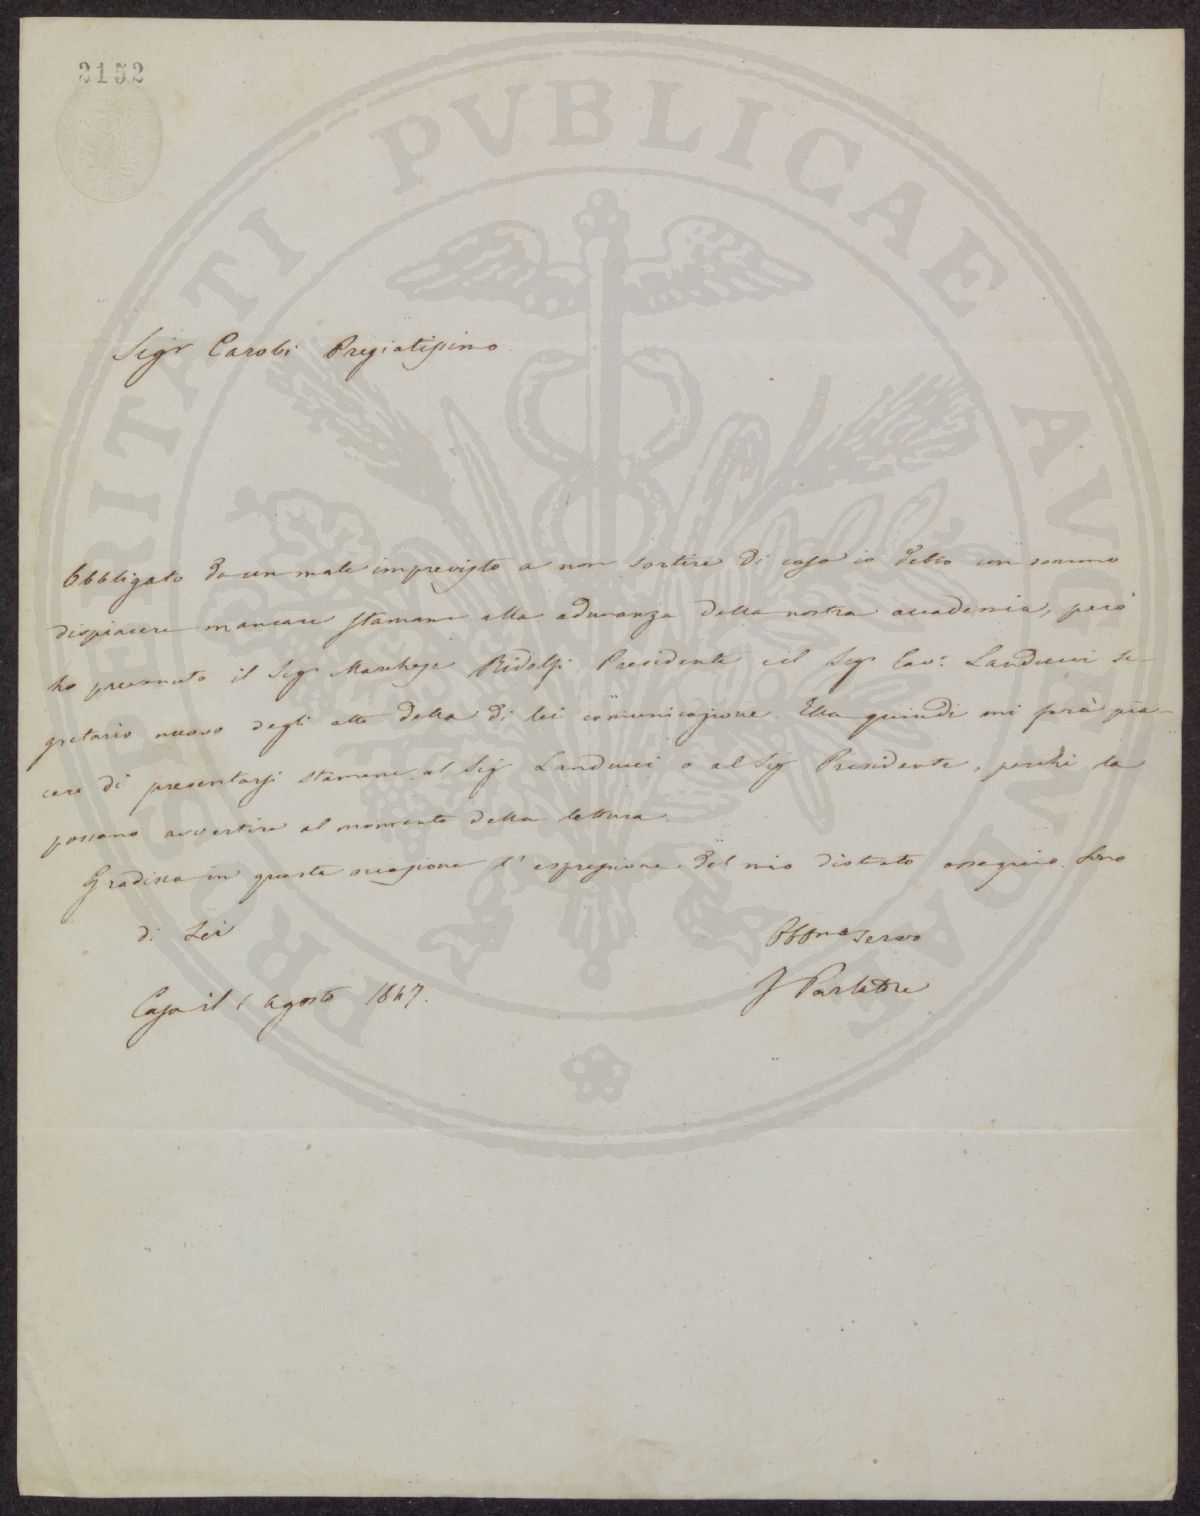 2152
PROSPERITATI PVBLICAE AVGENDAE
Sigr Carobi Pregiatissimo
Obbligato da un male imprevisto a non sortire di casa io debbo con sommo
dispiacere mancare stamane alla adunanza della nostra accademia, però
ho prevenuto il Sigr Marchese Ridolfi Presidente e il Sigr Cavr. Landucci se-
gretario nuovo degli atti della di lei comunicazione. Ella quindi mi farà pia-
cere di presentarsi stamane al Sigr Landucci o al Sigr Presidente, perchè la
possano avvertire al momento della lettura.
Gradisca in questa occasione l'espressione del mio distinto ossequio. Sono
di Lei
Obbmo servo
Casa il 1 agosto 1847.
F Parlatore